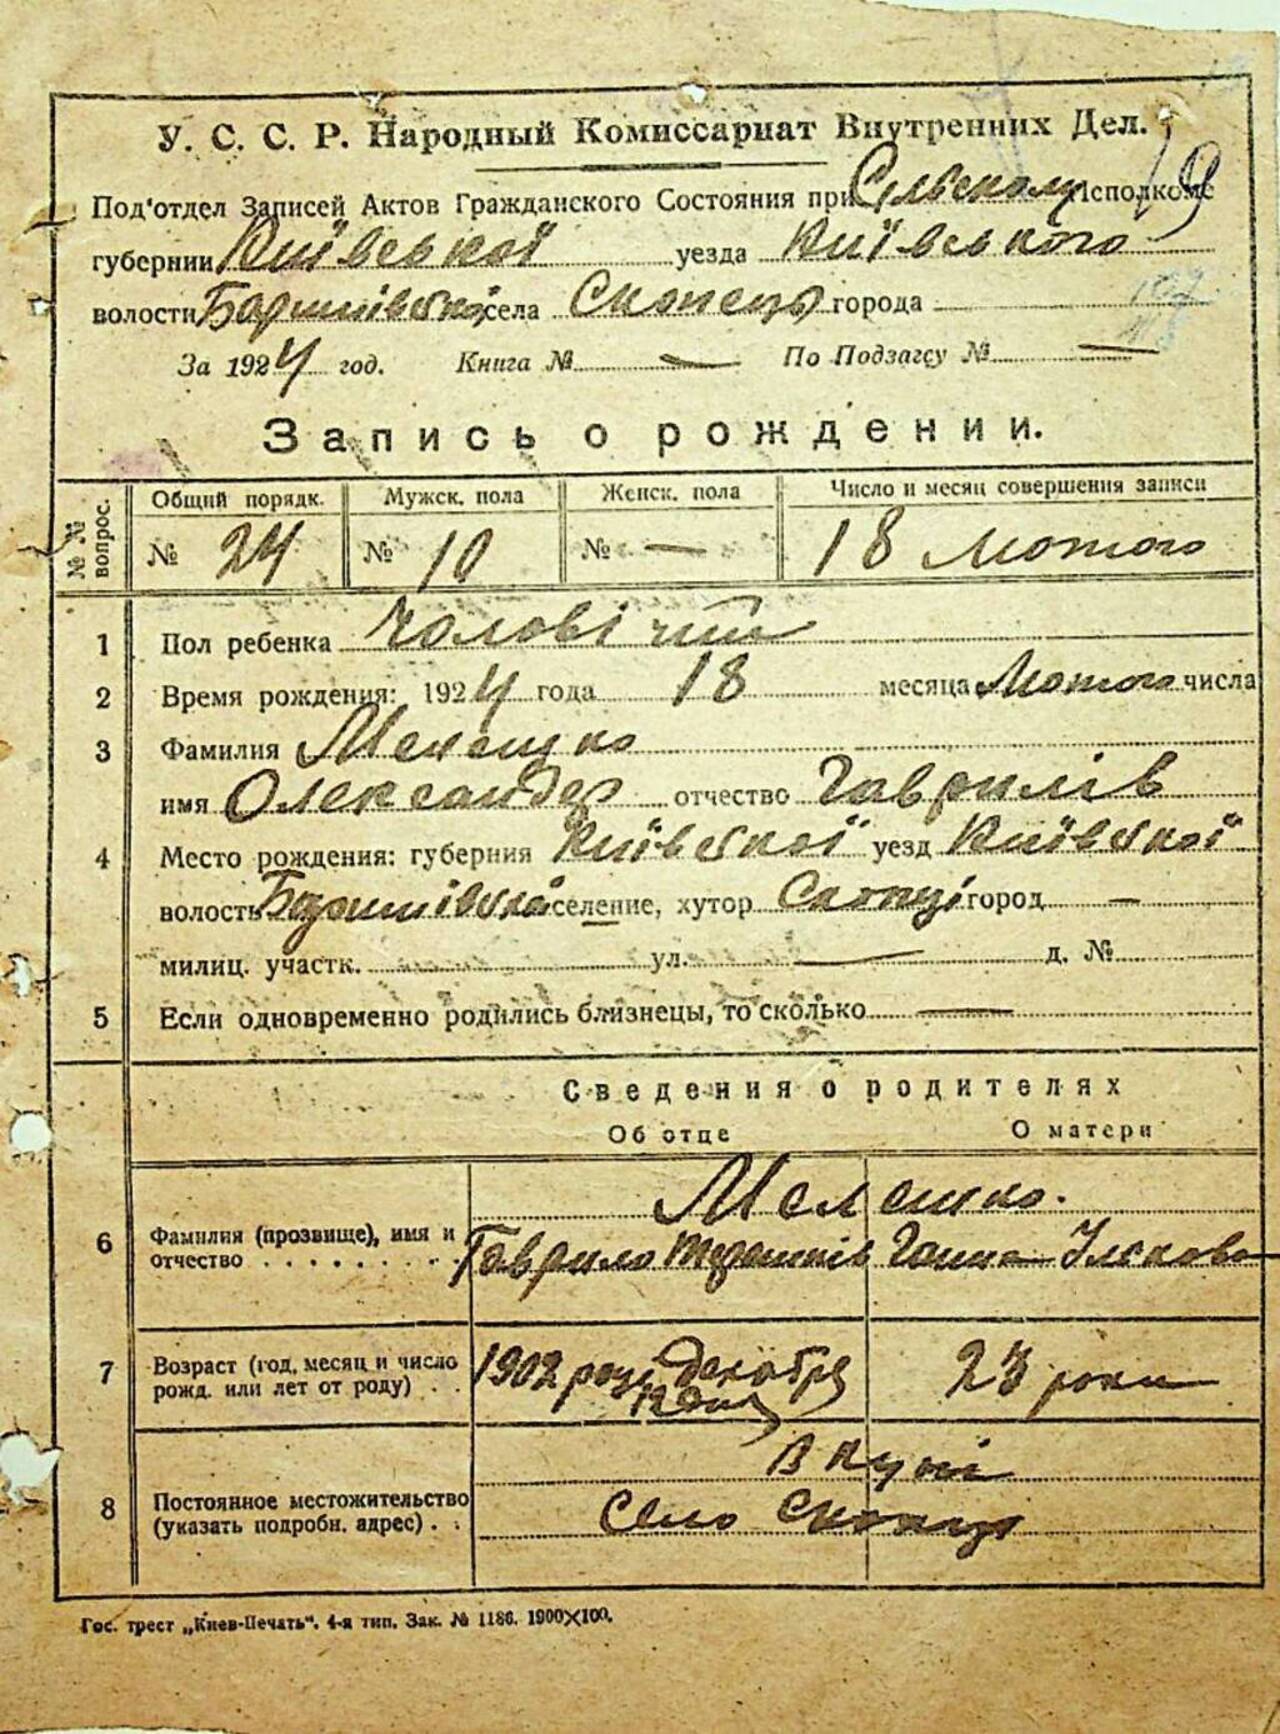 У. С. С. Р. Народный Комиссариат Внутренних Дел.
19
Под'отдел Записей Актов Гражданского Состояния при Сільському Исполкоме
губернии Київської уезда Київського
волости Баришівської села Скопець города —
За 1924 год. Книга № — По Подзагсу № —
Запись о рождении.
№ № вопрос. Общий порядк. Мужск. пола Женск. пола Число и месяц совершения записи
№ 24 № 10 № — 18 Лютого
1 Пол ребенка Чоловічий
2 Время рождения: 1924 года 18 месяца Лютого числа
3 Фамилия Мелешко
имя Олександер отчество Гаврилів
4 Место рождения: губерния Київської уезд Київської
волость Баришівська селение, хутор Скопці город —
милиц. участк. ул. — д. №
5 Если одновременно родились близнецы, то сколько —
Сведения о родителях
Об отце О матери
6 Фамилия (прозвище), имя и отчество . . . . . . . . . Мелешко.
Гаврило Ганна Ількова
7 Возраст (год, месяц и число рожд. или лет от роду) . . 1902 року Декабря 12 дня 23 роки
8 Постоянное местожительство (указать подробн. адрес) . . В купі
Село Скопці
Гос. трест „Киев-Печать". 4-я тип. Зак. № 1186. 1900×100.